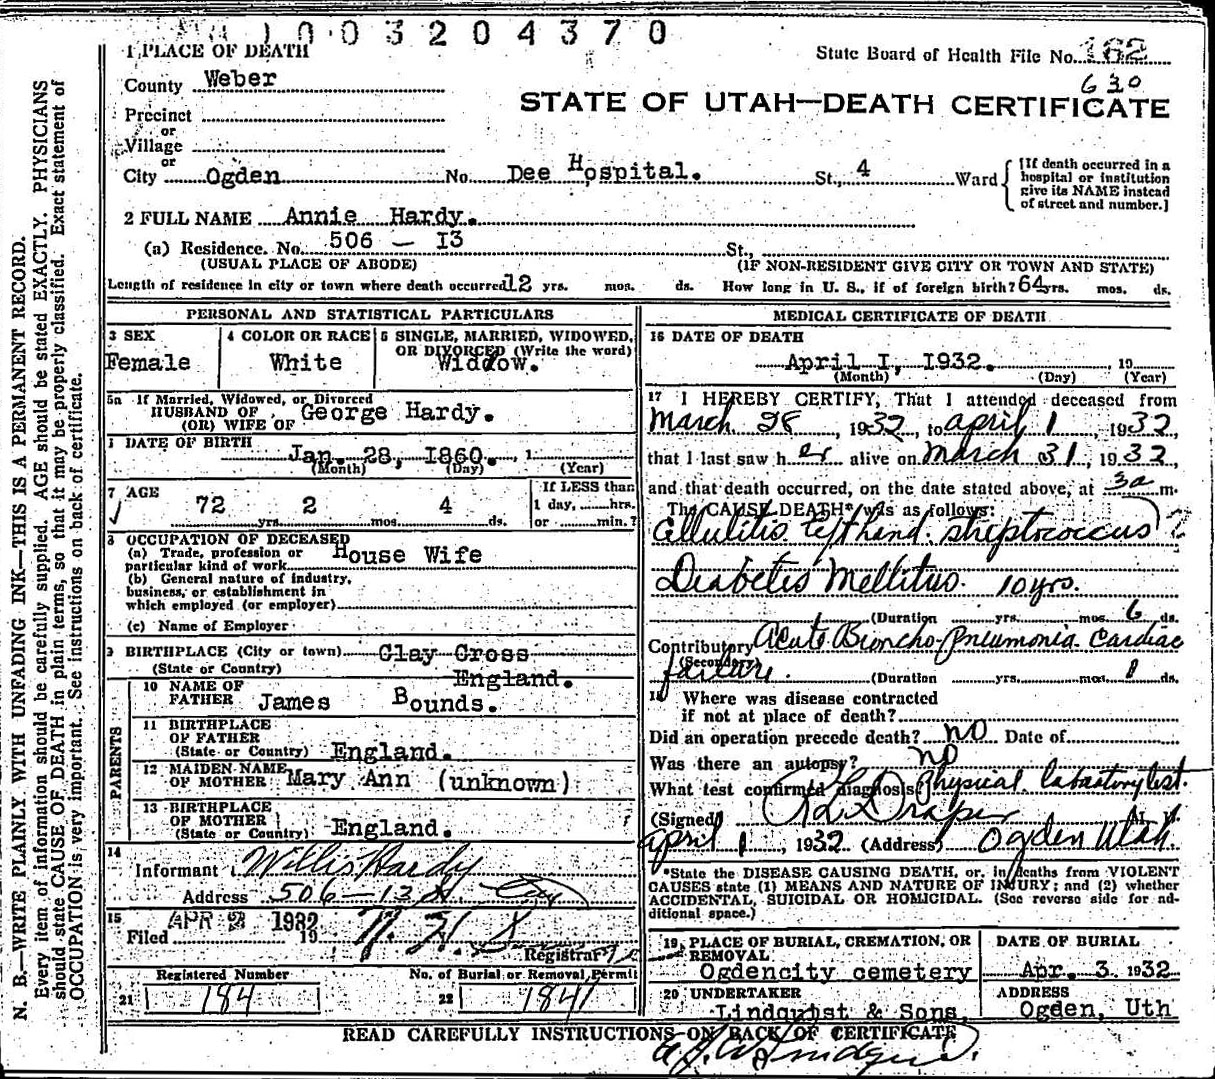 1003204370
1 PLACE OF DEATH
State Board of Health File No. 162
County Weber
630
STATE OF UTAH—DEATH CERTIFICATE
Precinct
or
Village
or
City Ogden No. Dee Hospital. St., 4 Ward
[If death occurred in a hospital or institution give its NAME instead of street and number.]
2 FULL NAME Annie Hardy.
(a) Residence. No. 506 — I3 St.,
(USUAL PLACE OF ABODE) (IF NON-RESIDENT GIVE CITY OR TOWN AND STATE)
Length of residence in city or town where death occurred 12 yrs. mos. ds. How long in U. S., if of foreign birth? 64 yrs. mos. ds.
PERSONAL AND STATISTICAL PARTICULARS
3 SEX
Female
4 COLOR OR RACE
White
5 SINGLE, MARRIED, WIDOWED,
OR DIVORCED (Write the word)
Widdow.
5a If Married, Widowed, or Divorced
HUSBAND OF
(OR) WIFE OF George Hardy.
DATE OF BIRTH
Jan. 28, I860. 1
(Month) (Day) (Year)
7 AGE
72 yrs. 2 mos. 4 ds.
If LESS than
1 day, hrs.
or min.?
8 OCCUPATION OF DECEASED
(a) Trade, profession or
particular kind of work House Wife
(b) General nature of industry,
business, or establishment in
which employed (or employer)
(c) Name of Employer
9 BIRTHPLACE (City or town) Clay Cross
(State or Country) England.
PARENTS
10 NAME OF
FATHER James Bounds.
11 BIRTHPLACE
OF FATHER
(State or Country) England.
12 MAIDEN NAME
OF MOTHER Mary Ann (unknown)
13 BIRTHPLACE
OF MOTHER
(State or Country) England.
14
Informant Willis Hardy
Address 506—13 St. City
15
Filed APR 2 1932 19
Registrar
Registered Number
21 184
No. of Burial or Removal Permit
22 1841
MEDICAL CERTIFICATE OF DEATH
16 DATE OF DEATH
April I, I932. 19
(Month) (Day) (Year)
17 I HEREBY CERTIFY, That I attended deceased from
March 28, 1932, to April 1, 1932,
that I last saw her alive on March 31, 1932,
and that death occurred, on the date stated above, at 3a m.
The CAUSE DEATH* was as follows:
Cellulitis left hand. streptococcus ?
Diabetis Mellitus. 10 yrs.
(Duration yrs. mos. 6 ds.
Contributory Acute Broncho-Pneumonia. Cardiac
(Secondary)
failure. (Duration yrs. mos. 1 ds.
18 Where was disease contracted
if not at place of death?
Did an operation precede death? no Date of
Was there an autopsy? no
What test confirmed diagnosis? Physical laboratory test.
(Signed) Draper
April 1, 1932 (Address) Ogden Utah.
*State the DISEASE CAUSING DEATH, or, in deaths from VIOLENT
CAUSES state (1) MEANS AND NATURE OF INJURY; and (2) whether
ACCIDENTAL, SUICIDAL OR HOMICIDAL. (See reverse side for ad-
ditional space.)
19 PLACE OF BURIAL, CREMATION, OR
REMOVAL
Ogdencity cemetery
DATE OF BURIAL
Apr. 3 1932
20 UNDERTAKER
Lindquist & Sons,
ADDRESS
Ogden, Uth
READ CAREFULLY INSTRUCTIONS ON BACK OF CERTIFICATE
N. B.—WRITE PLAINLY WITH UNFADING INK—THIS IS A PERMANENT RECORD.
Every item of information should be carefully supplied. AGE should be stated EXACTLY. PHYSICIANS
should state CAUSE OF DEATH in plain terms, so that it may be properly classified. Exact statement of
OCCUPATION is very important. See instructions on back of certificate.